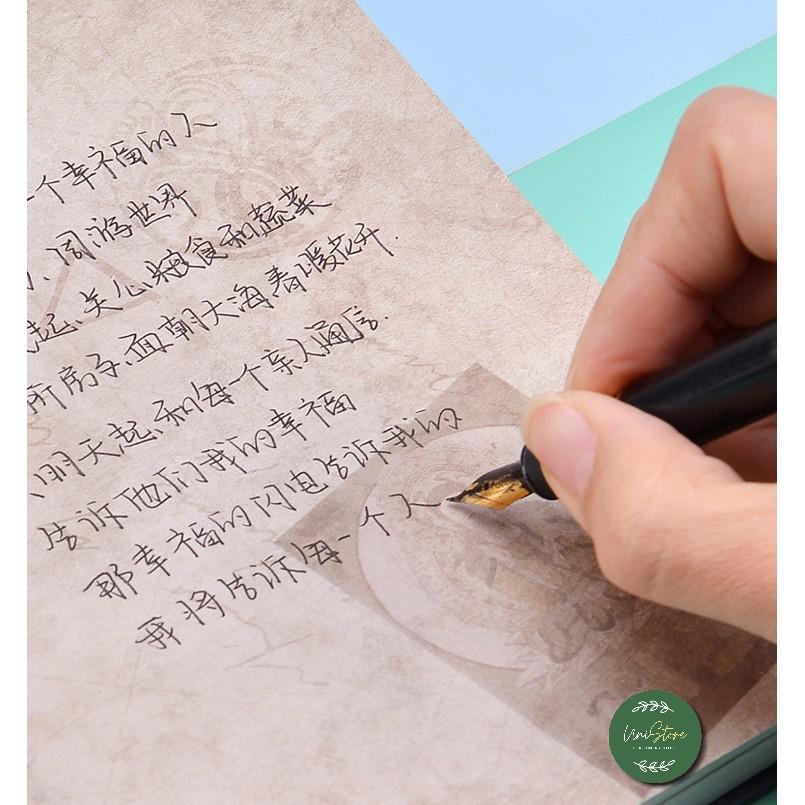 一个幸福的人
、周游世界
起、关心粮食和蔬菜
所房子、面朝大海春暖花开.
、明天起、和每一个亲人通信.
告诉他们我的幸福
那幸福的闪电告诉我的
我将告诉每一个人
UniStore